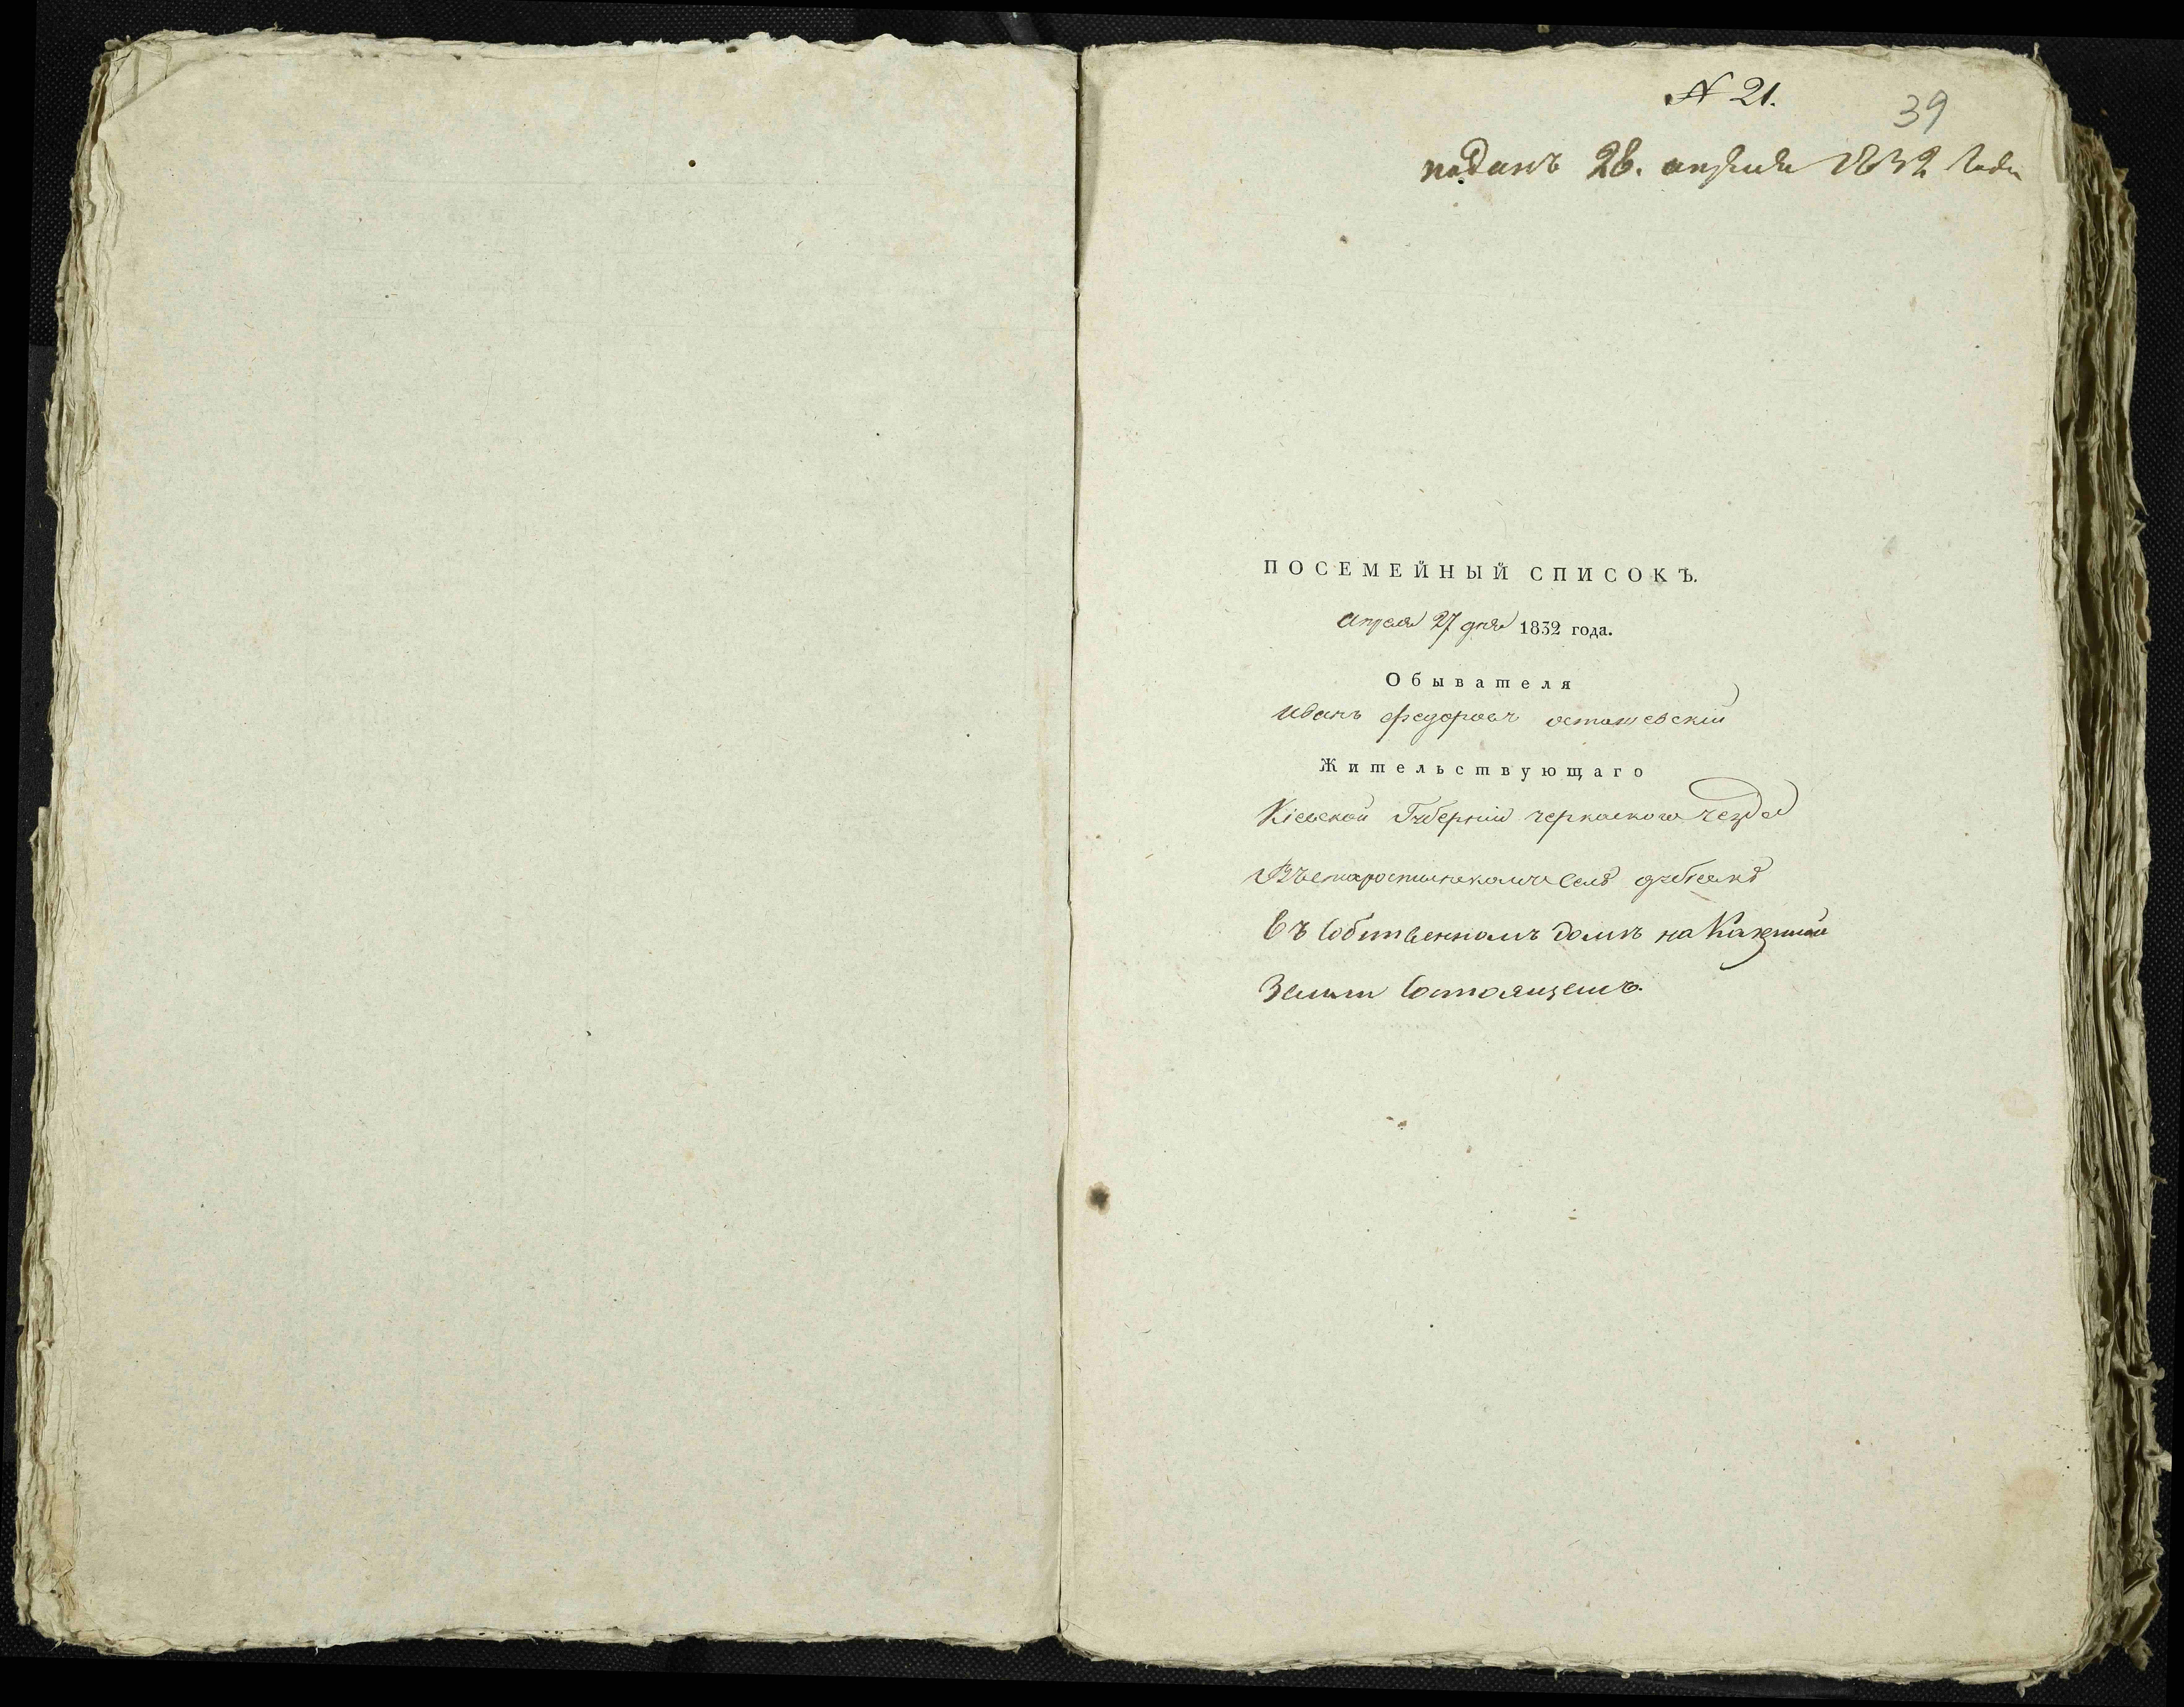 N 21.
39
поданъ 28. апреля 1832 года
ПОСЕМЕЙНЫЙ СПИСОКЪ.
апреля 27 дня 1832 года.
Обывателя
иванъ федоровъ осташевскiй
Жительствующаго
Кіевской Губернiи черкаского уезда
въ селѣ
въ собственномъ домѣ на Казенной
Земли состоящемъ.